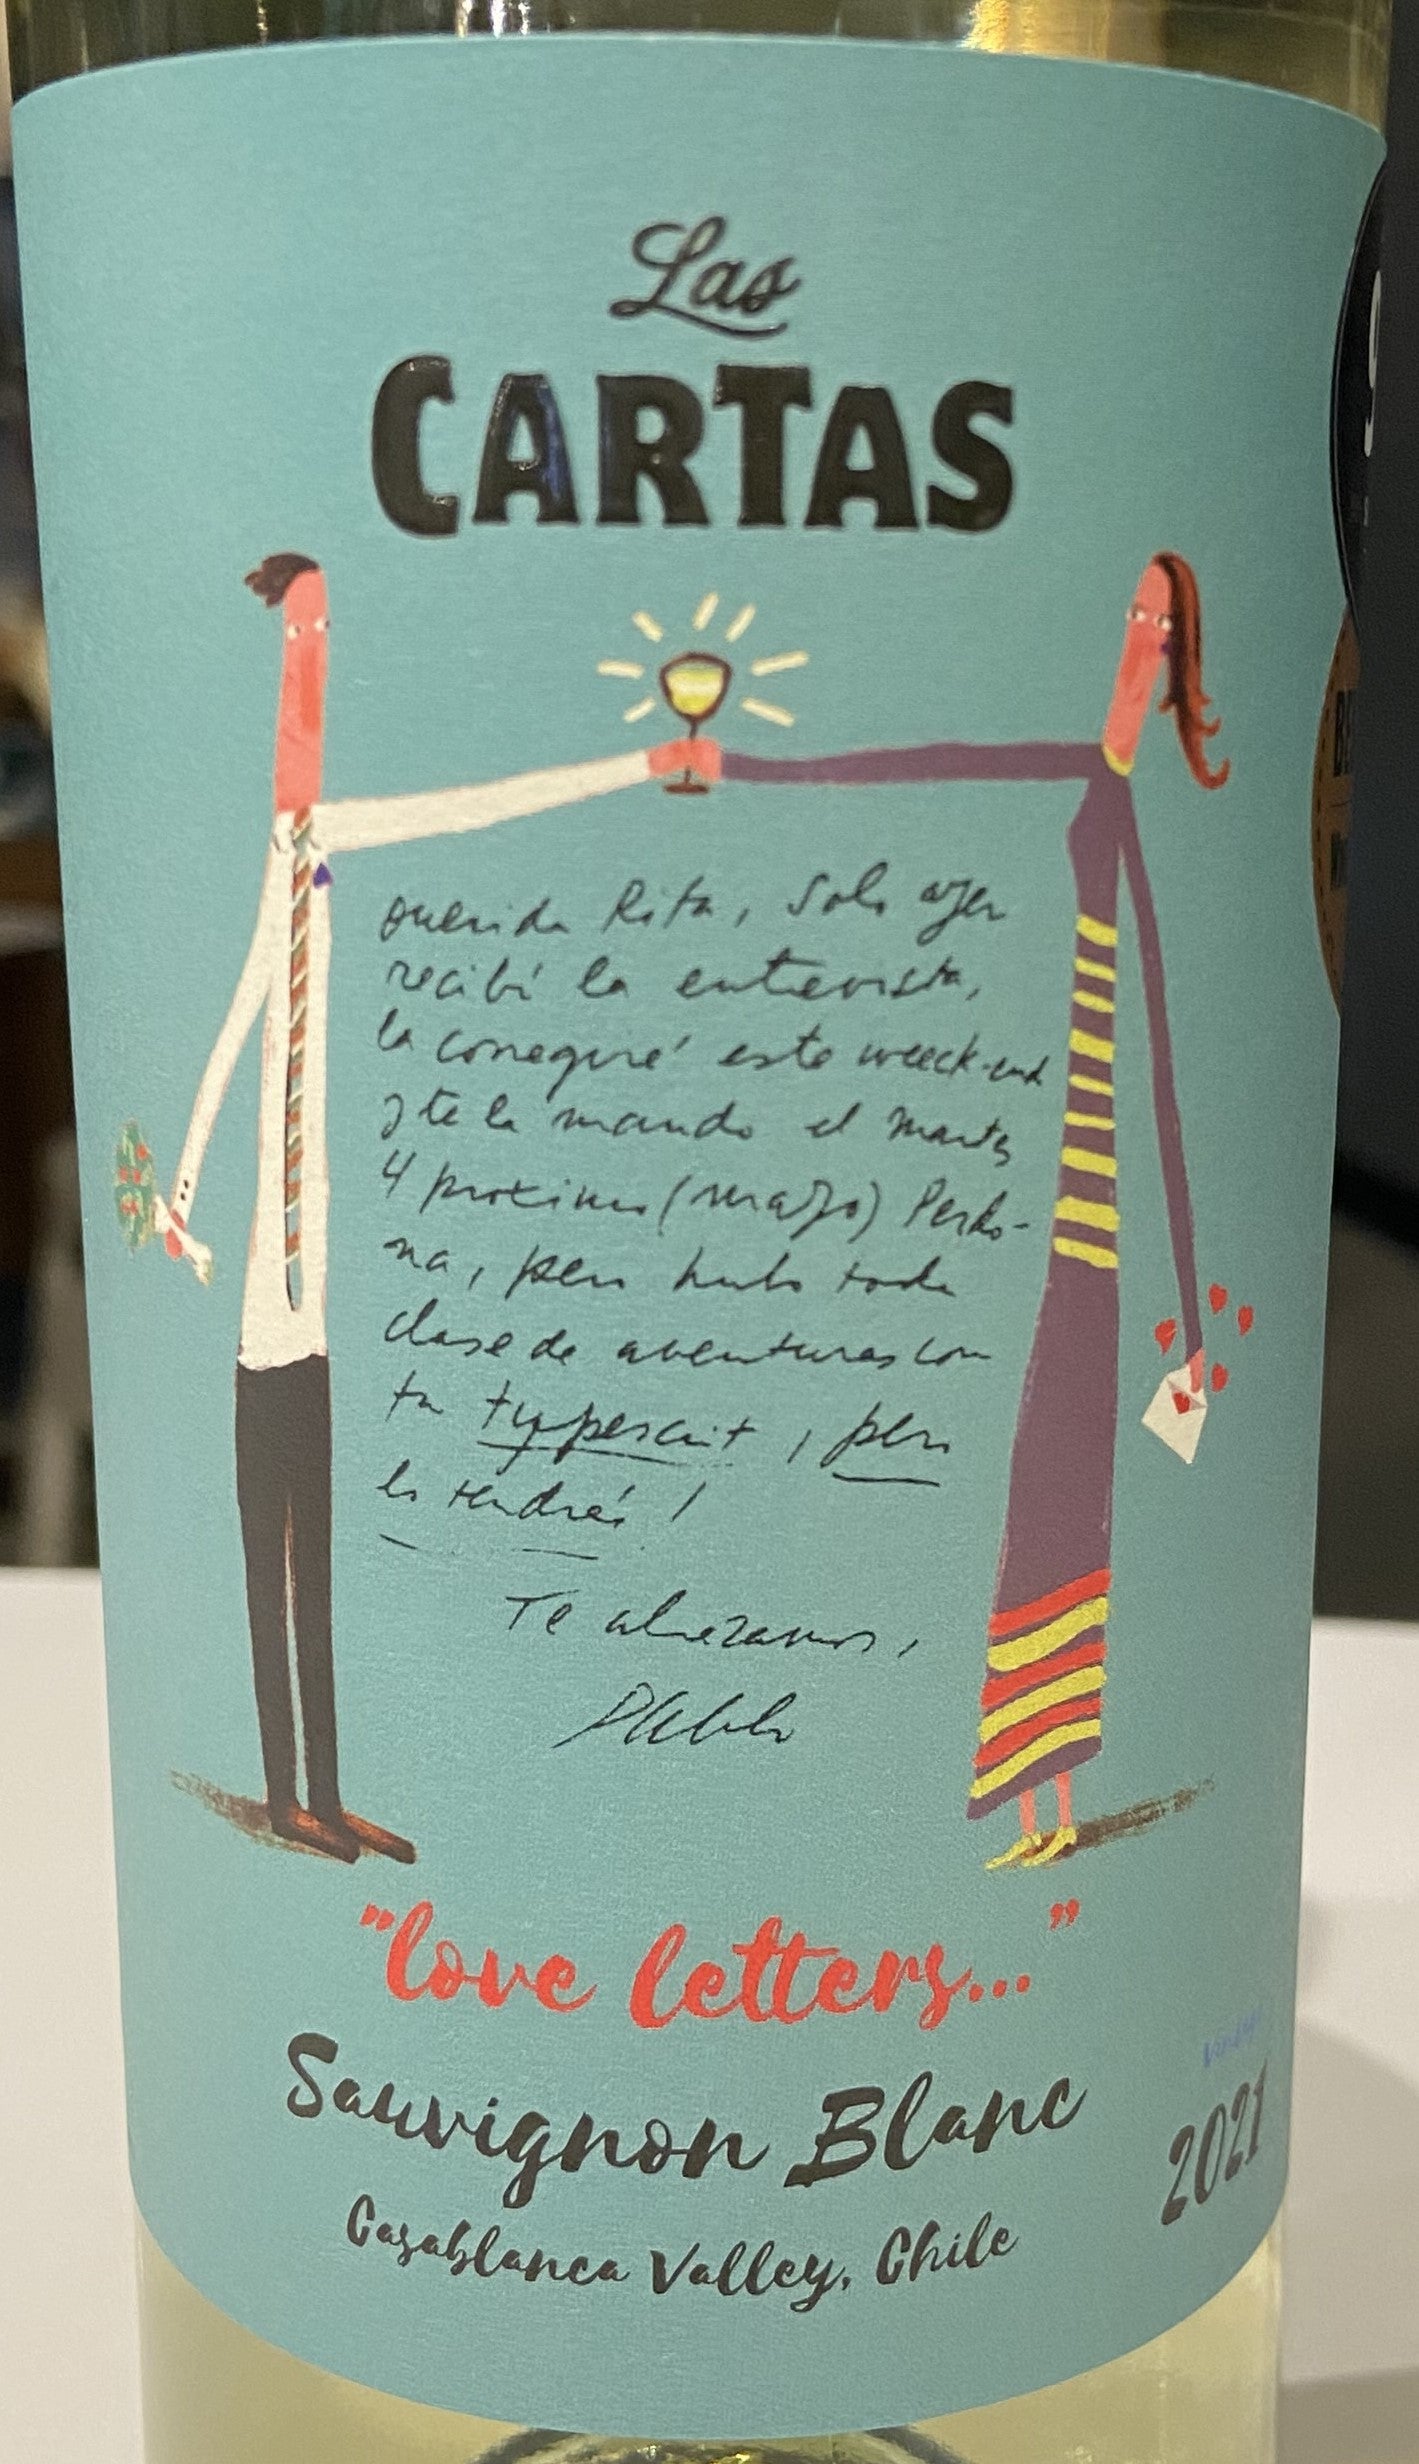 Las
CARTAS
Querida Rita, Solo ayer
recibí la entrevista,
la corregiré este weeck-end
y te la mando el martes
4 proximo (mayo) Perdo-
na, pero hubo toda
clase de aventuras con
tu typescrit, pero
lo tendrás!
Te abrazamos,
Pablo
"love letters..."
Sauvignon Blanc
2021
Casablanca Valley, Chile
9